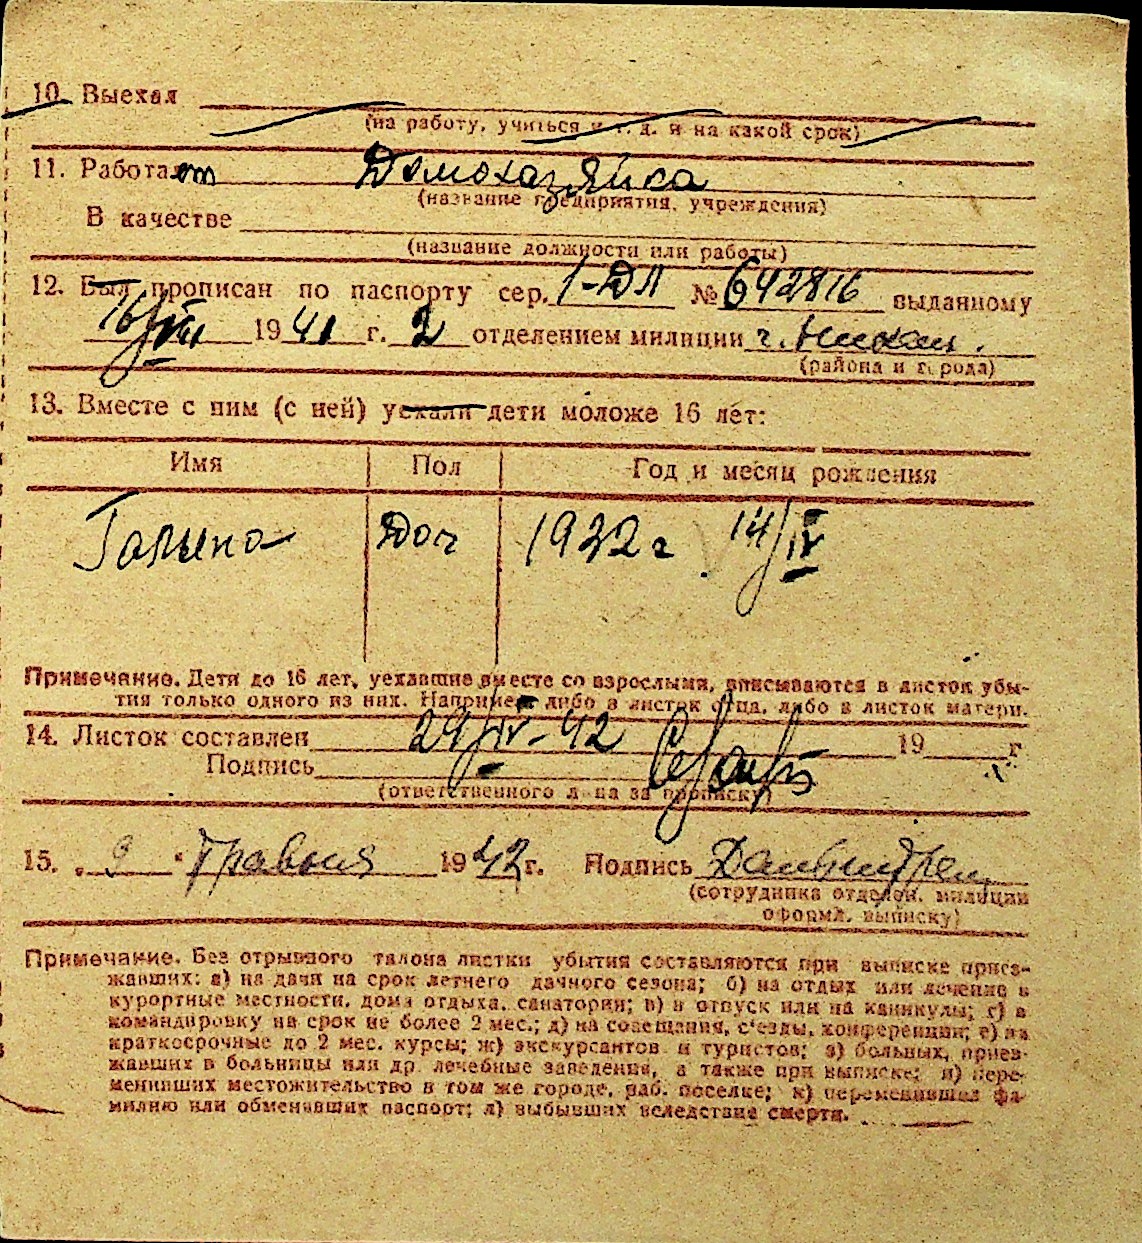 10. Выехал
(на работу, учиться и т. д. и на какой срок)
11. Работает Домохазяйка
(название предприятия, учреждения)
В качестве
(название должности или работы)
12. Был прописан по паспорту сер. 1-ДЛ № 642816 выданному
16/VII 1941 г. 2 отделением милиции г.
(района и города)
13. Вместе с ним (с ней) уехали дети моложе 16 лет:
Имя Пол Год и месяц рождения
Галина Доч 1932 г 14/IV
Примечание. Дети до 16 лет, уехавшие вместе со взрослыми, вписываются в листок убы-
тия только одного из них. Например либо в листок отца, либо в листок матери.
14. Листок составлен 29/IV-42 19 г
Подпись
(ответственного л-ца за прописку)
15. „9“ Травня 1942 г. Подпись
(сотрудника отделен. милиции
оформл. выписку)
Примечание. Без отрывного талона листки убытия составляются при выписке приез-
жавших: а) на дачи на срок летнего дачного сезона; б) на отдых или лечение в
курортные местности, дома отдыха, санатории; в) в отпуск или на каникулы; г) в
командировку на срок не более 2 мес.; д) на совещания, с'езды, конференции; е) на
краткосрочные до 2 мес. курсы; ж) экскурсантов и туристов; з) больных, приез-
жавших в больницы или др. лечебные заведения, а также при выписке; и) пере-
менивших местожительство в том же городе, раб. поселке; к) переменивших фа-
милию или обменявших паспорт; л) выбывших вследствие смерти.